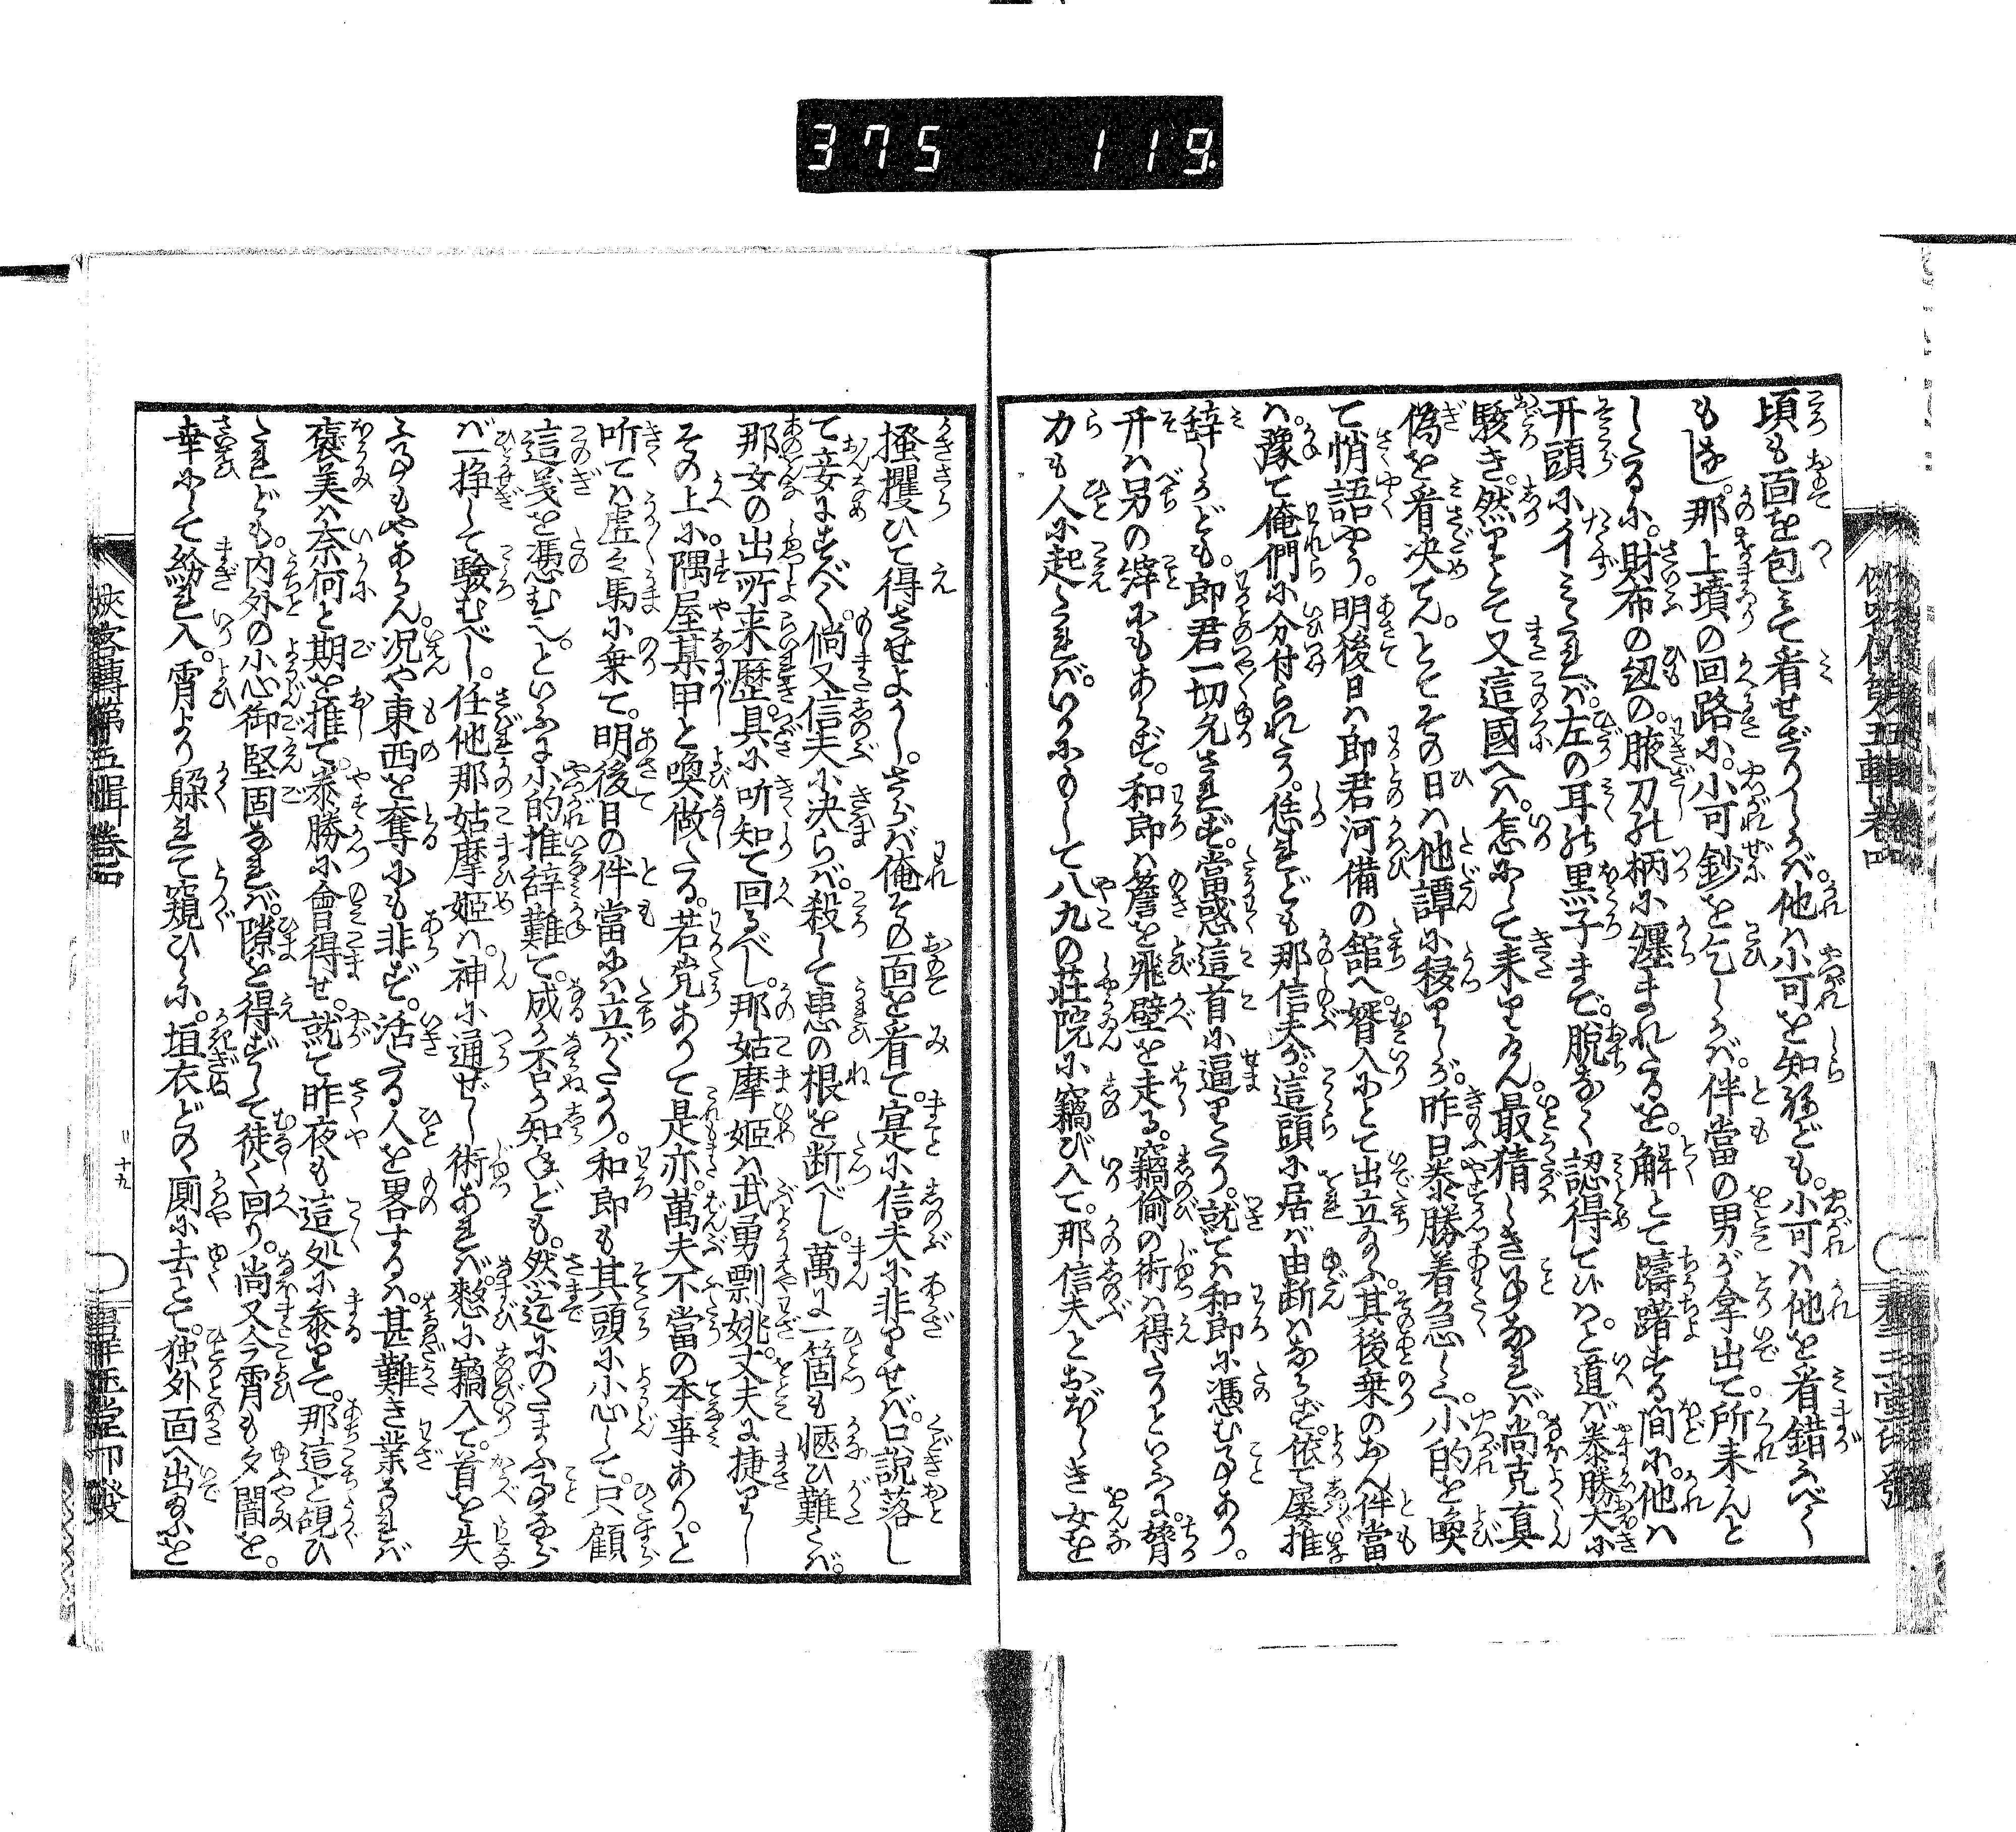 375 119
頃も面を包みて看せざりしかバ。他ハ小可を知ねども。小可ハ他を看錯べく
もなし。那上墳の回路に。小可鈔を乞しかバ。伴當の男が拿出て。所来んと
したるに。財布の紐の。腋刀の柄に纏まれたるを。解とて躊躇する間に。他ハ
开頭に彳みたれバ。左の耳の黒子まで。脱なく認得てひハ。と道バ泰勝大に
駭き。然りとて又這國へハ。怎にして来りけん。最猜しき事なれバ。尚克真
偽を看决てん。とてその日ハ他譚に移りしが。昨日泰勝着急しく。小的を喚
て悄語やう。明後日ハ郎君河備の舘へ。婿入にとて出立給ふ。其後乗のおん伴當
ハ。豫て俺們に分付られたり。恁れども那信夫が。這頭に居バ由断ハならず。依て屡推
辞しかども。郎君一切允されず。當惑這首に逼りたり。就てハ和郎に憑む事あり。
开ハ別の縡にもあらず。和郎ハ簷を飛壁を走る。竊偷の術ハ得たりといふに。膂
力も人に起えたれバ。いかにもして八九の荘院に竊び入て。那信夫とおぼしき女を
搔攫ひて得させよかし。さらバ俺その面を看て。寔に信夫に非りせバ。口説落し
て妾にすべく。倘又信夫に决らバ。殺して患の根を断べし。萬に一箇も愜ひ難くバ。
那女の出所来歴。具に听知て回るべし。那姑摩姫ハ武勇剽姚。丈夫に捷りし
その上に。隅屋某甲と喚做たる。若党ありて是亦。萬夫不當の本事あり。と
听てハ虚々馬に乗て。明後日の伴當にハ立がたかり。和郎も其頭に小心して。只顧
這義を憑むし。といふに小的推辞難て。成か不か知ねども。然迄にのたまふ事なら
バ一挣して驗むべし。任他那姑摩姫ハ。神に通ぜし術あれバ。憖に竊入て。首を失
ふ事もやあらん。况や東西を奪にも非ず。活たる人を畧するハ。甚難き業なれバ
褒美ハ奈何と期を推て。泰勝に會得せ。就て昨夜も這処に参りて。那這と覘ひ
たれども。内外の小心御堅固なれバ。隙を得ずして徒く回り。尚又今霄も夕闇を。
幸にして紛れ入。霄より躱れて窺ひしに。垣衣どのゝ厠に去とて。独外面へ出給ふを
俠客傳第五輯巻四
十九
群玉堂印發